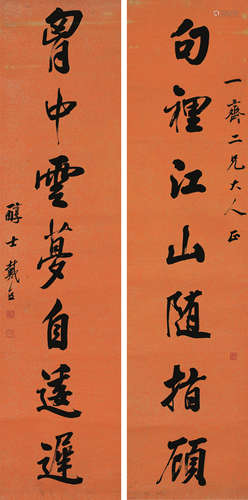 一齋二兄大人正
句裡江山随指顧
胷中雲夢自逶遲
醇士戴熙